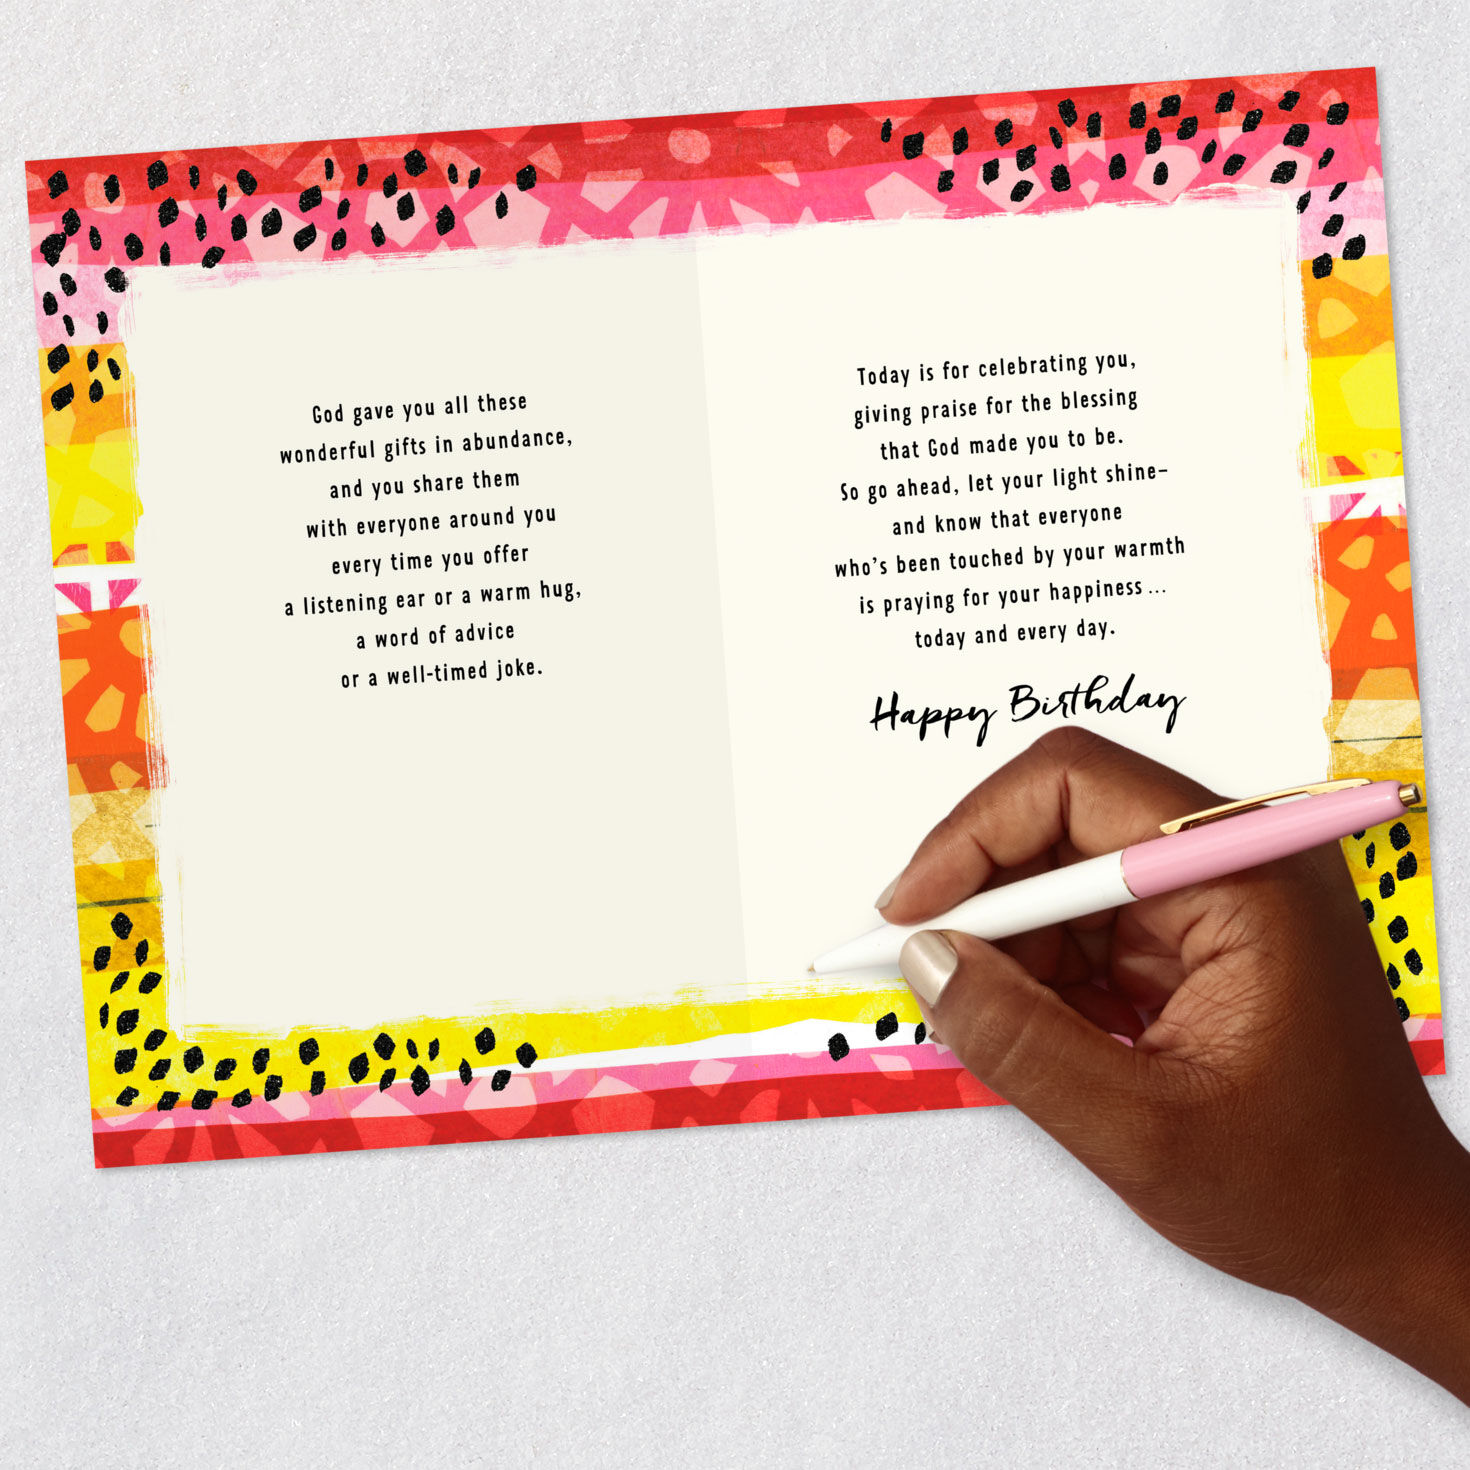 God gave you all these
wonderful gifts in abundance,
and you share them
with everyone around you
every time you offer
a listening ear or a warm hug,
a word of advice
or a well-timed joke.
Today is for celebrating you,
giving praise for the blessing
that God made you to be.
So go ahead, let your light shine–
and know that everyone
who's been touched by your warmth
is praying for your happiness...
today and every day.
Happy Birthday